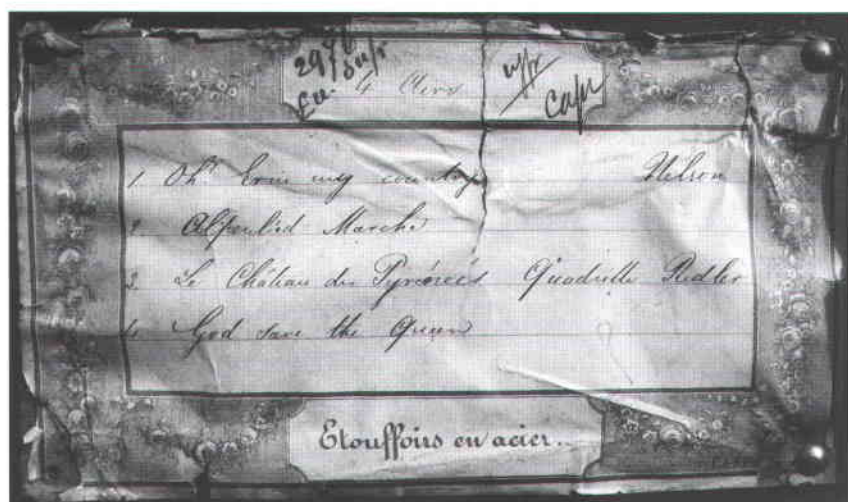 4 Airs
1. Oh! Erin my country Nelson
2. Alpenlied Marche
3. Le Château des Pyrénées Quadrille Redler
4. God save the Queen
Etouffoirs en acier..